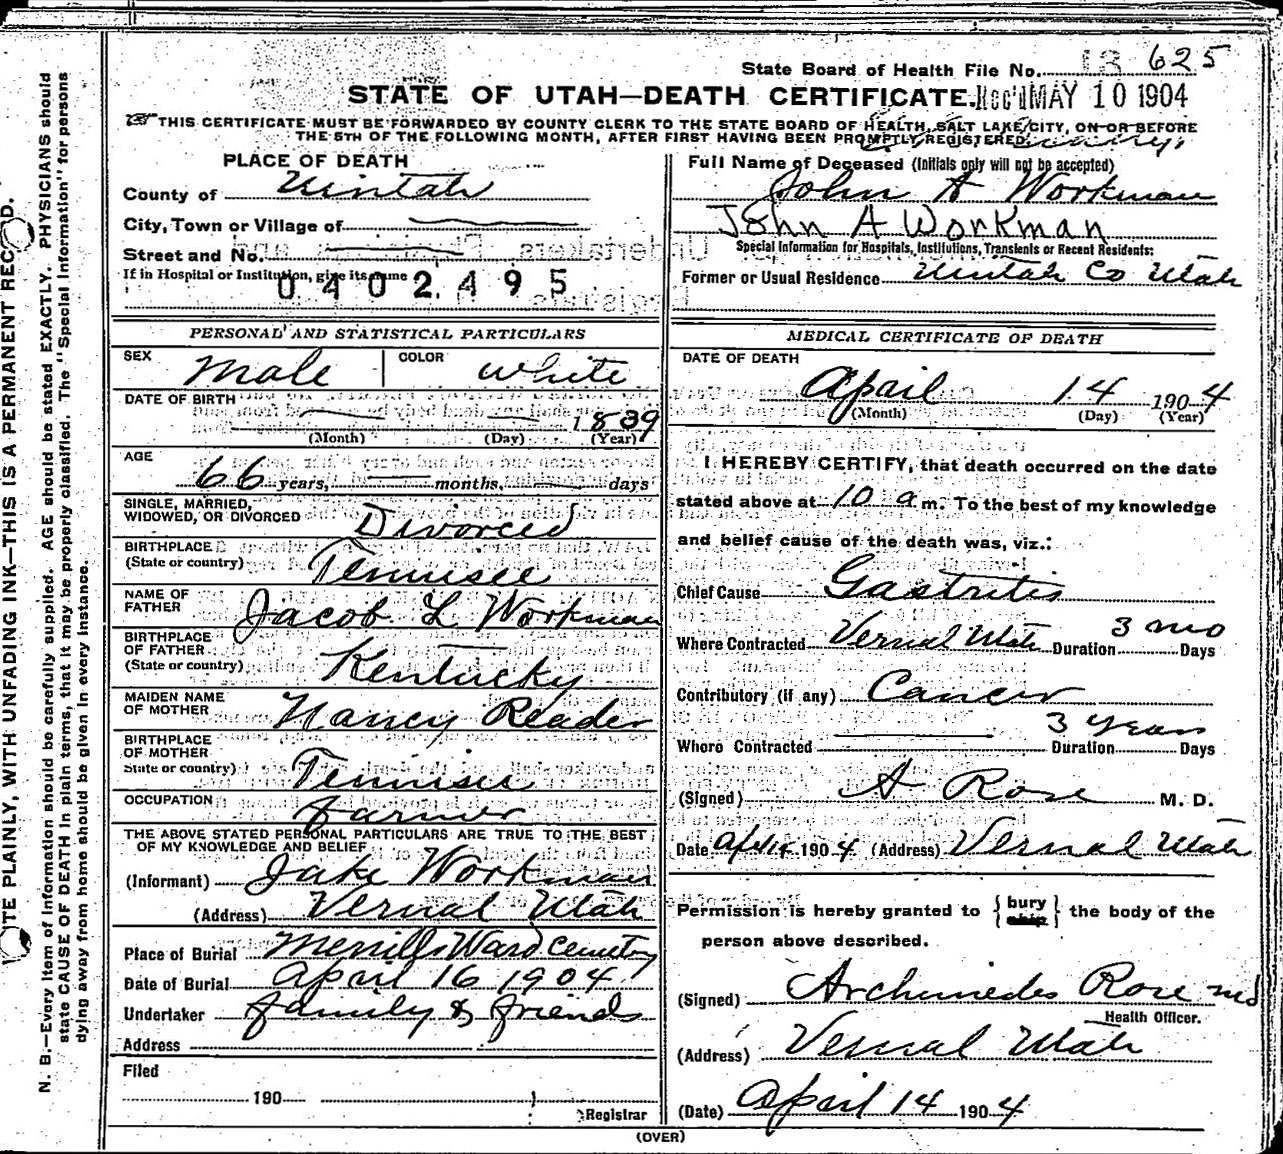 State Board of Health File No. 13 625
STATE OF UTAH—DEATH CERTIFICATE. Rec'd MAY 10 1904
THIS CERTIFICATE MUST BE FORWARDED BY COUNTY CLERK TO THE STATE BOARD OF HEALTH, SALT LAKE CITY, ON OR BEFORE
THE 5TH OF THE FOLLOWING MONTH, AFTER FIRST HAVING BEEN PROMPTLY REGISTERED
PLACE OF DEATH
County of Uintah
City, Town or Village of
Street and No.
If in Hospital or Institution, give its name
0402495
Full Name of Deceased (Initials only will not be accepted)
John A Workman
John A Workman
Special Information for Hospitals, Institutions, Transients or Recent Residents:
Former or Usual Residence Uintah Co Utah
PERSONAL AND STATISTICAL PARTICULARS
SEX Male COLOR White
DATE OF BIRTH 1839
(Month) (Day) (Year)
AGE 66 years, months, days
SINGLE, MARRIED,
WIDOWED, OR DIVORCED Divorced
BIRTHPLACE
(State or country) Tennisee
NAME OF
FATHER Jacob L Workman
BIRTHPLACE
OF FATHER
(State or country) Kentucky
MAIDEN NAME
OF MOTHER Nancy Reader
BIRTHPLACE
OF MOTHER
State or country) Tennisee
OCCUPATION farmer
THE ABOVE STATED PERSONAL PARTICULARS ARE TRUE TO THE BEST
OF MY KNOWLEDGE AND BELIEF
(Informant) Jake Workman
(Address) Vernal Utah
Place of Burial Merrills Ward Cemetry
Date of Burial April 16 1904
Undertaker family & friends
Address
Filed
190
Registrar
MEDICAL CERTIFICATE OF DEATH
DATE OF DEATH
April 14 1904
(Month) (Day) (Year)
I HEREBY CERTIFY, that death occurred on the date
stated above at 10 a m. To the best of my knowledge
and belief cause of the death was, viz.:
Chief Cause Gastritis
Where Contracted Vernal Utah Duration 3 mo Days
Contributory (if any) Cancer
Where Contracted Duration 3 years Days
(Signed) A Rose M. D.
Date 1904 (Address) Vernal Utah
Permission is hereby granted to { bury ship } the body of the
person above described.
(Signed) Archimedes Rose md
Health Officer.
(Address) Vernal Utah
(Date) April 14 1904
(OVER)
N. B.—Every item of information should be carefully supplied. AGE should be stated EXACTLY. PHYSICIANS should
state CAUSE OF DEATH in plain terms, that it may be properly classified. The "Special Information" for persons
dying away from home should be given in every instance.
ITE PLAINLY, WITH UNFADING INK—THIS IS A PERMANENT RECORD.